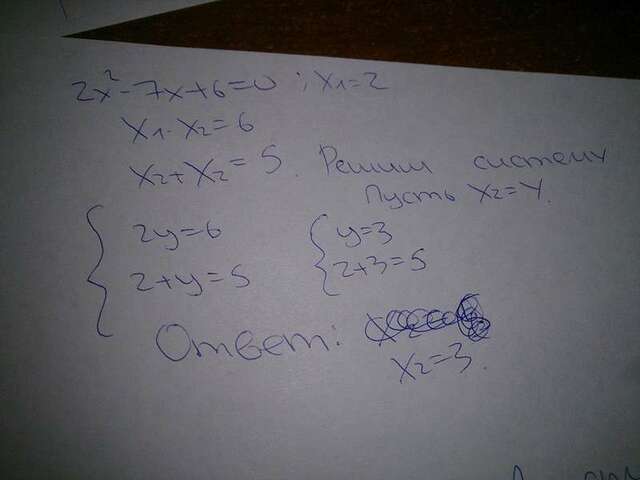 2x²-7x+6=0 ; x₁=2
x₁·x₂=6
x₂+x₂=5. Решим систему
Пусть x₂=y.
2y=6
2+y=5
y=3
2+3=5
Ответ:
x₂=3.